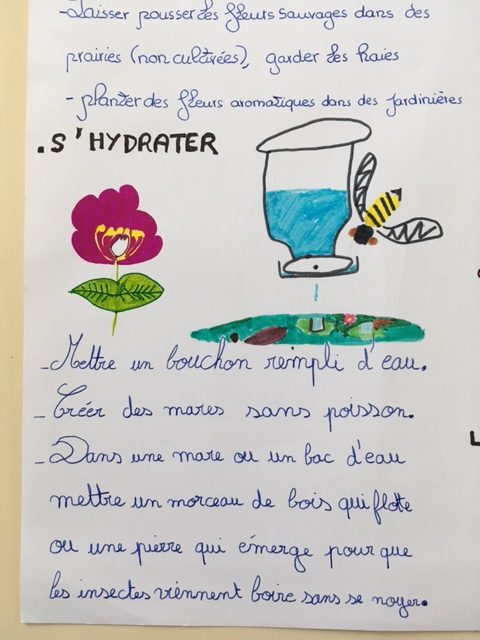 -Laisser pousser les fleurs sauvages dans des
prairies (non cultivées), garder les haies
- planter des fleurs aromatiques dans des jardinières
.S'HYDRATER
-Mettre un bouchon rempli d'eau.
-Créer des mares sans poisson.
-Dans une mare ou un bac d'eau
mettre un morceau de bois qui flotte
ou une pierre qui émerge pour que
les insectes viennent boire sans se noyer.